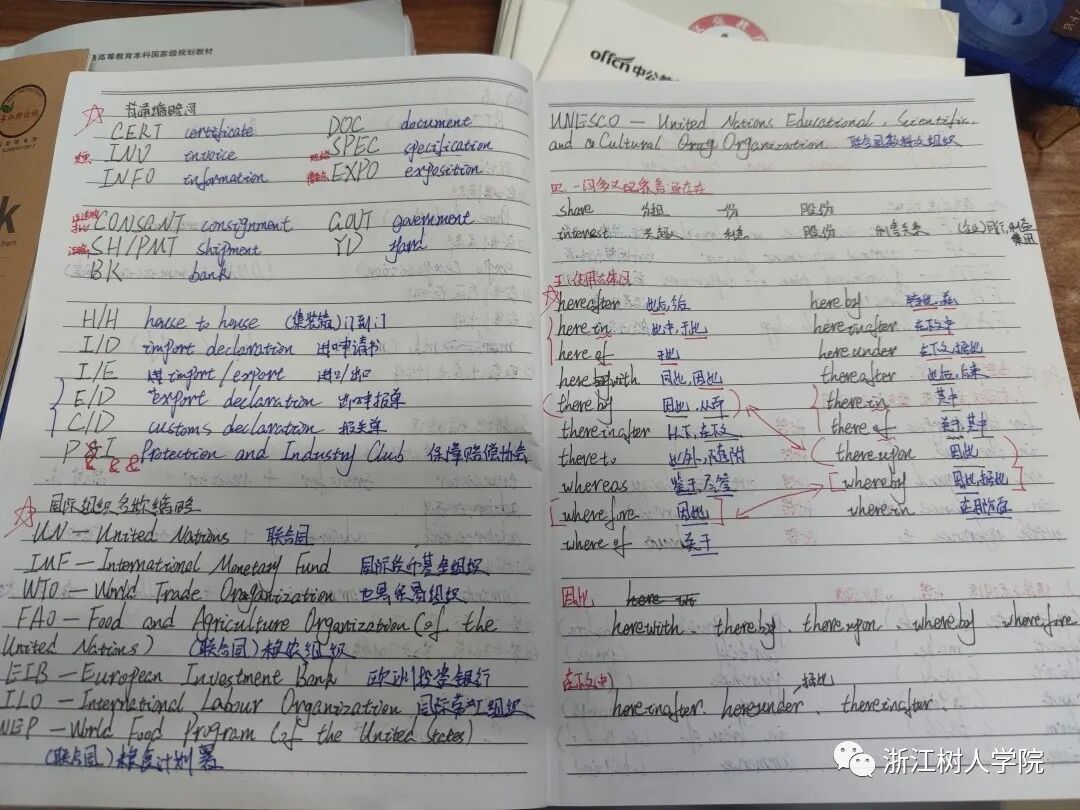 高等教育本科国家级规划教材
offcn中公教
普通缩略词
CERT certificate DOC document
INV invoice SPEC specification
INFO information EXPO exposition
CONSGNT consignment GOVT government
SH/PMT shipment YD yard
BK bank
H/H house to house (集装箱)门到门
I/D import declaration 进口申请书
I/E import/export 进口/出口
E/D export declaration 出口申报单
C/D customs declaration 报关单
P & I Protection and Industry Club 保障赔偿协会
& & &
国际组织名称缩略
UN — United Nations 联合国
IMF — International Monetary Fund 国际货币基金组织
WTO — World Trade Oraganization 世界贸易组织
FAO — Food and Agriculture Organization (of the
United Nations) (联合国)粮农组织
EIB — European Investment Bank 欧洲投资银行
ILO — International Labour Organization 国际劳工组织
WEP — World Food Program (of the United States)
(联合国)粮食计划署
UNESCO — United Nations Educational, Scientific,
and Cultural Organization 联合国教科文组织
四、一词多义现象普遍存在
share 分担 一份 股份
interest 兴趣 利息 股份 利害关系 (企业)同行,
五、使用古体词
hereafter 此后,今后 hereby 特此,兹
herein 此中,于此 hereinafter 在下文中
hereof 于此 hereunder 在下文,据此
herewith 同此,因此 thereafter 此后,后来
thereby 因此,从而 therein 其中
thereinafter 以下,在下文 thereof 关于,其中
thereto 此外,随附 thereupon 因此
whereas 鉴于,尽管 whereby 因此,据此
wherefore 因此 wherein 在那方面
whereof 关于
因此
herewith. thereby. thereupon whereby wherefore
在下文(中) 据此
hereinafter. hereunder. thereinafter.
浙江树人学院